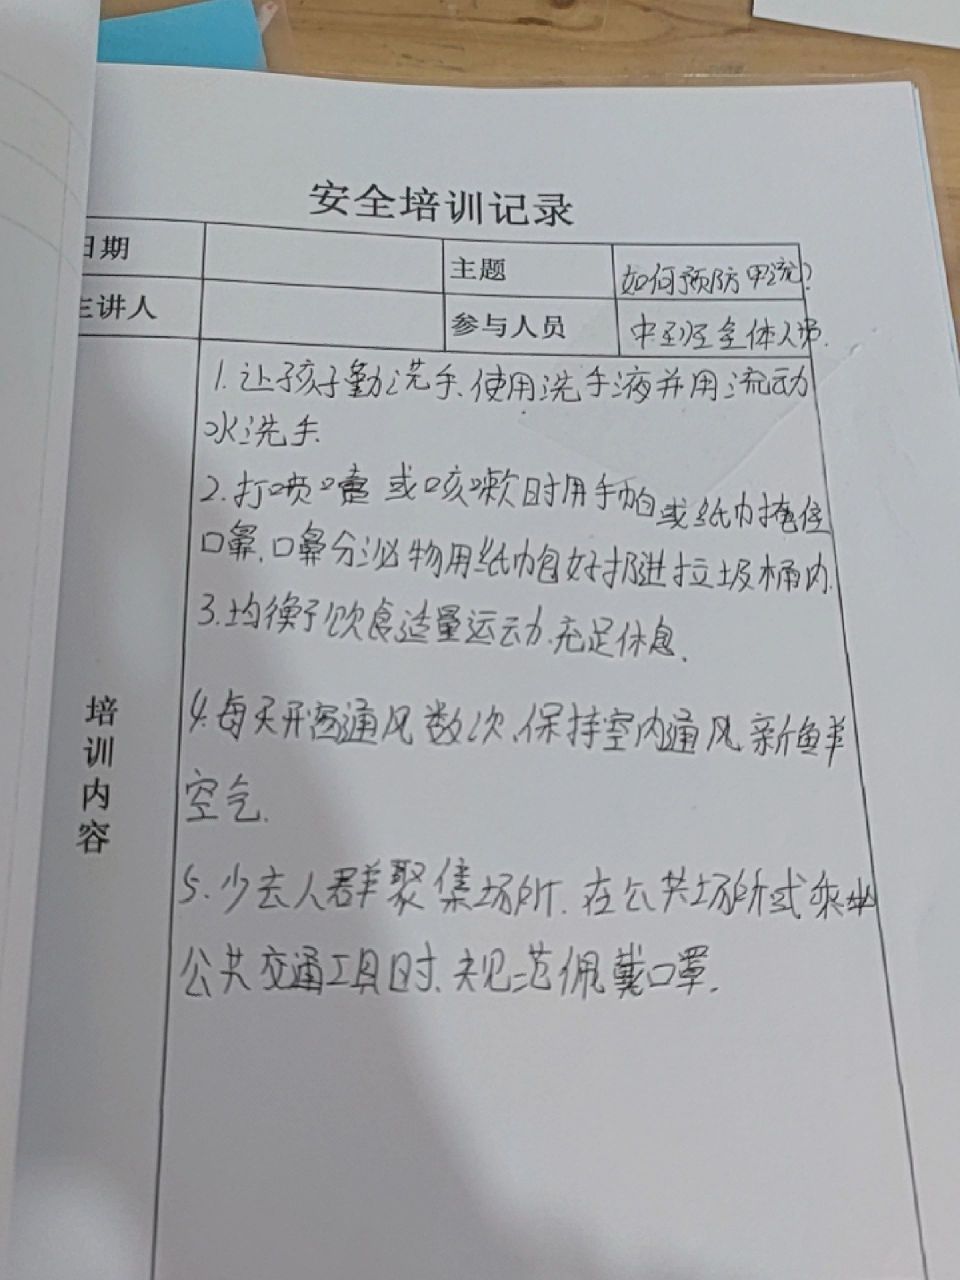 安全培训记录
日期 主题 如何预防甲流?
主讲人 参与人员 中班全体人员.
培训内容
1.让孩子勤洗手.使用洗手液并用流动
水洗手.
2.打喷嚏或咳嗽时用手帕或纸巾掩住
口鼻.口鼻分泌物用纸巾包好扔进垃圾桶内.
3.均衡饮食适量运动.充足休息.
4.每天开窗通风数次.保持室内通风新鲜
空气.
5.少去人群聚集场所.在公共场所或乘坐
公共交通工具时.规范佩戴口罩.